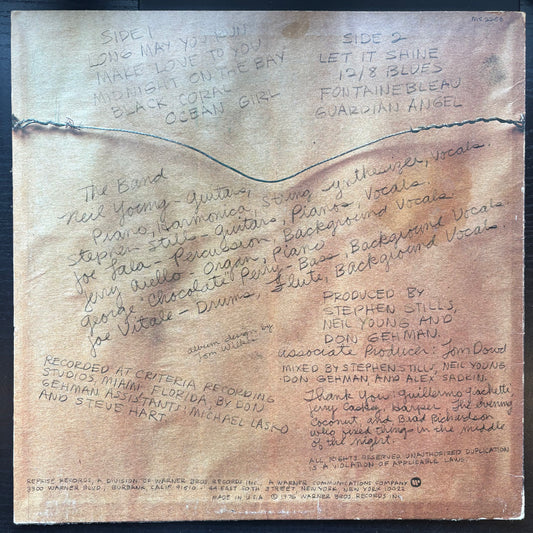 MS 2253
SIDE 1
LONG MAY YOU RUN
MAKE LOVE TO YOU
MIDNIGHT ON THE BAY
BLACK CORAL
OCEAN GIRL
SIDE 2
LET IT SHINE
12/8 BLUES
FONTAINEBLEAU
GUARDIAN ANGEL
The Band
Neil Young - Guitars,
Piano, Harmonica, String Synthesizer, Vocals.
Stephen Stills - Guitars, Pianos, Vocals.
Joe Lala - Percussion, Background Vocals.
Jerry Aiello - Organ, Piano
George "Chocolate" Perry - Bass, Background Vocals.
Joe Vitale - Drums, Flute, Background Vocals.
album design by
Tom Wilkes
PRODUCED BY
STEPHEN STILLS,
NEIL YOUNG AND
DON GEHMAN.
Associate Producer: Tom Dowd
MIXED BY STEPHEN STILLS, NEIL YOUNG,
DON GEHMAN AND ALEX SADKIN.
RECORDED AT CRITERIA RECORDING
STUDIOS, MIAMI FLORIDA, BY DON
GEHMAN ASSISTANTS: MICHAEL LASKO
AND STEVE HART
Thank You: Guillermo Giachetti
Jerry Caskey, Harper, The evening
Coconut, and Brad Richardson
who fixed things in the middle
of the night.
ALL RIGHTS RESERVED UNAUTHORIZED DUPLICATION
IS A VIOLATION OF APPLICABLE LAWS.
REPRISE RECORDS, A DIVISION OF WARNER BROS RECORDS INC. A WARNER COMMUNICATIONS COMPANY
3300 WARNER BLVD., BURBANK, CALIF. 91510 · 44 EAST 50TH STREET, NEW YORK, NEW YORK 10022
MADE IN U.S.A. © 1976 WARNER BROS. RECORDS INC.